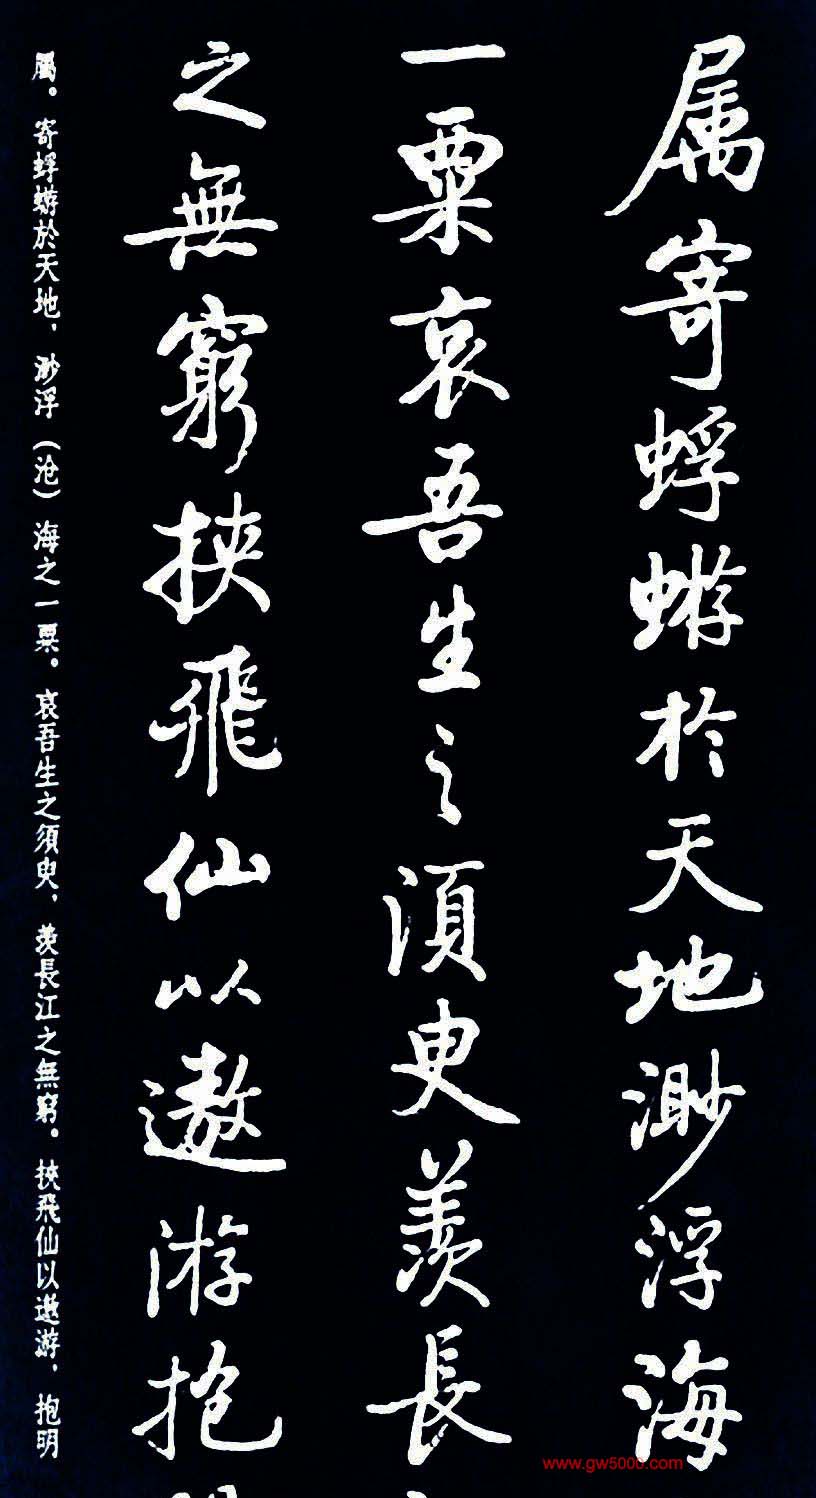 属寄蜉蝣於天地渺浮海
一粟哀吾生之須臾羨長
之無窮挾飛仙以遨游抱
屬。寄蜉蝣於天地，渺浮（沧）海之一粟。哀吾生之須臾，羨長江之無窮。挾飛仙以遨游，抱明
www.gw5000.com